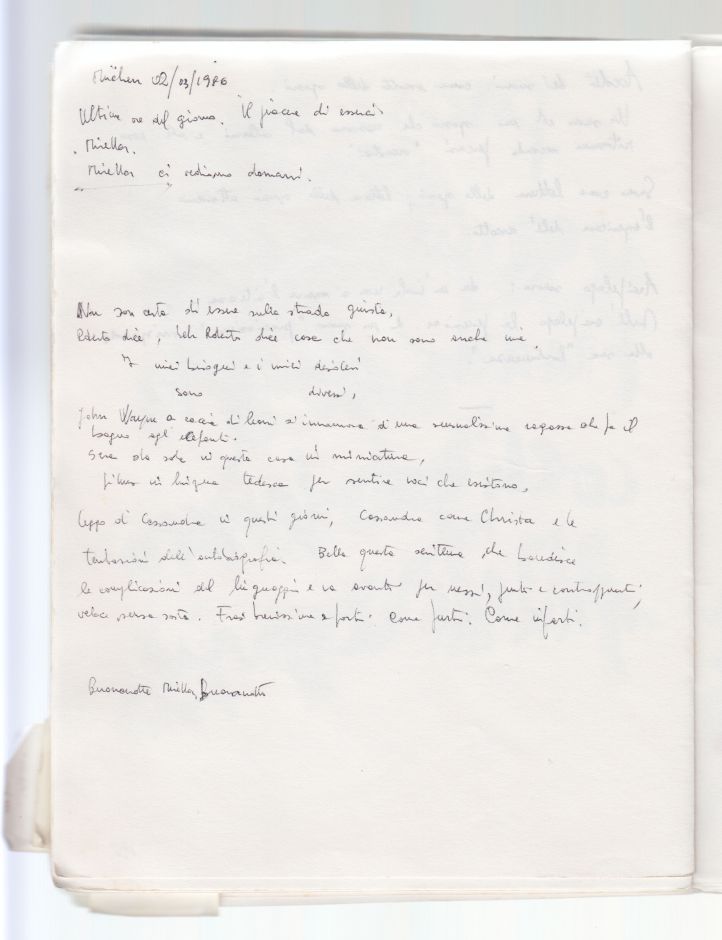 München 02/03/1986
Ultime ore del giorno. Il piacere di esserci
. Mirella.
Mirella ci vediamo domani.
Non son certa di essere sulla strada giusta,
Roberto dice, beh Roberto dice cose che non sono anche mie.
I miei bisogni e i miei desideri
sono diversi,
John Wayne a caccia di leoni si innamora di una sensualissima ragazza che fa il
bagno agli elefanti.
Sera da sola in questa casa in miniatura,
films in lingua tedesca per sentire voci che esistono,
leggo di Cassandra in questi giorni, Cassandra come Christa e le
tentazioni dell'autobiografia. Bella questa scrittura, che
le complicazioni del linguaggio e va avanti per nessi, punti e contrappunti,
veloce, senza sosta. Frasi brevissime e forti. Come furti. Come infarti.
Buonanotte Mirella, Buonanotte